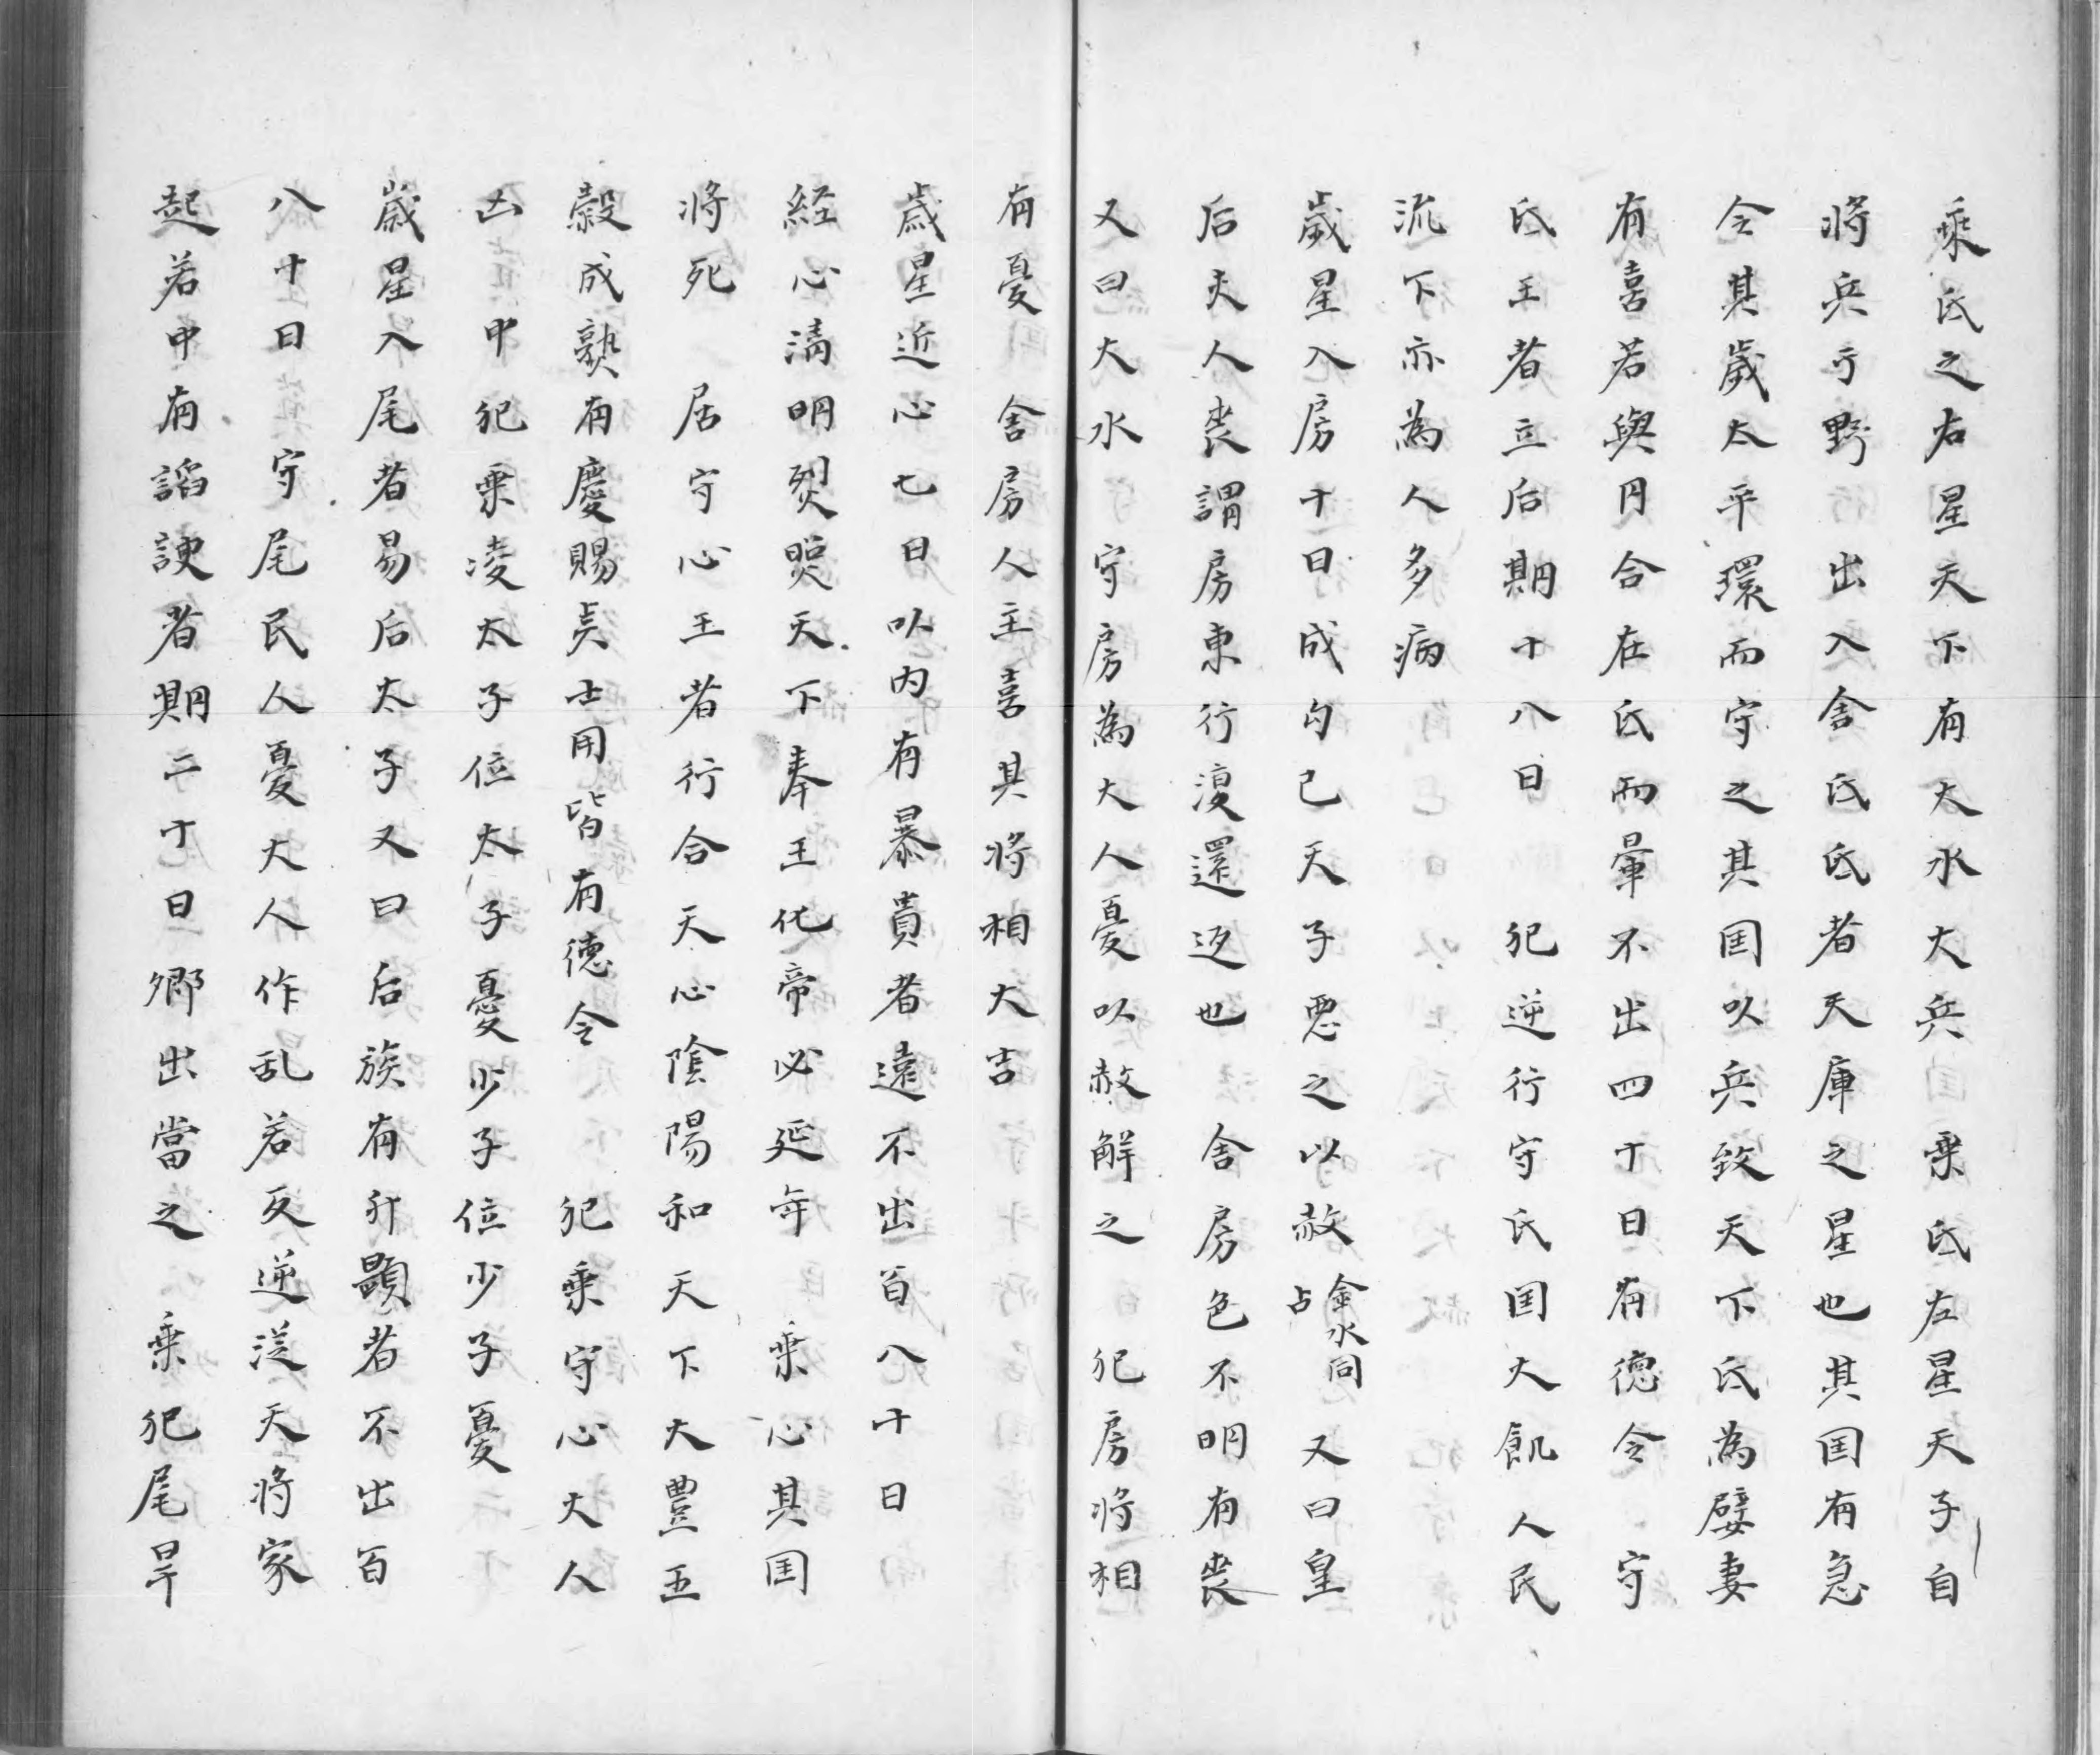 乘氐之右星天下有大水大兵　乗氐左星天子自
将兵于野　出入舎氐氐者天庫之星也其国有急
令其歳太平環而守之其国以兵致天下氐為嬖妻
有喜若與月合在氐而暈不出四十日有德令　守
氐王者立后期十八日　犯逆行守氐国大飢人民
流下亦為人多病
歳星入房十日成勾已天子悪之以赦金水同占　又曰皇
后夫人喪謂房東行復還返也　舎房色不明有喪
又曰大水　守房為大人憂以赦解之　犯房将相
有憂　舎房人主喜其将相大吉
歳星近心七日以内有暴貴者遠不出百八十日
経心清明烈照天下奉王化帝必延年　乗心其国
将死　居守心王者行合天心陰陽和天下大豊五
穀成熟有慶賜贤士用皆有德令　犯乗守心大人
凶　中犯乗凌太子位太子憂少子位少子憂
歳星入尾者易后太子又曰后族有升顕者不出百
八十日　守尾民人憂大人作乱若反逆従天将家
起若中有謟諛者期二十日郷出當之　乗犯尾旱